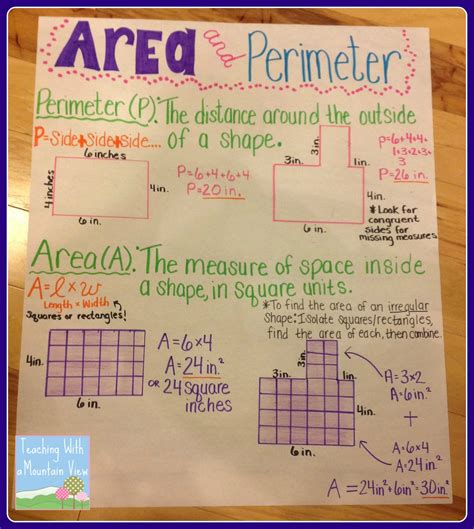 Area and Perimeter
Perimeter (P): The distance around the outside
of a shape.
P=Side+Side+Side....
6 inches
4 inches
4in.
6 in.
P=6+4+6+4
P=20in.
3in.
3in.
1in.
4in.
6 in.
P=6+4+
1+3+2+3+
3
P=26 in.
*Look for
congruent
sides for
missing measures
Area(A): The measure of space inside
a shape, in square units.
A=l×w
Length × Width
Squares or rectangles!
4in.
6in.
A=6×4
A=24in.²
OR 24 Square
inches
*To find the area of an irregular
Shape: Isolate squares/rectangles,
find the area of each, then combine.
3in.
1in.
1in.
4in.
6in.
A=3×2
A=6in.²
+
A=6×4
A=24in.²
A=24in²+6in²=30in.²
Teaching With
a Mountain View